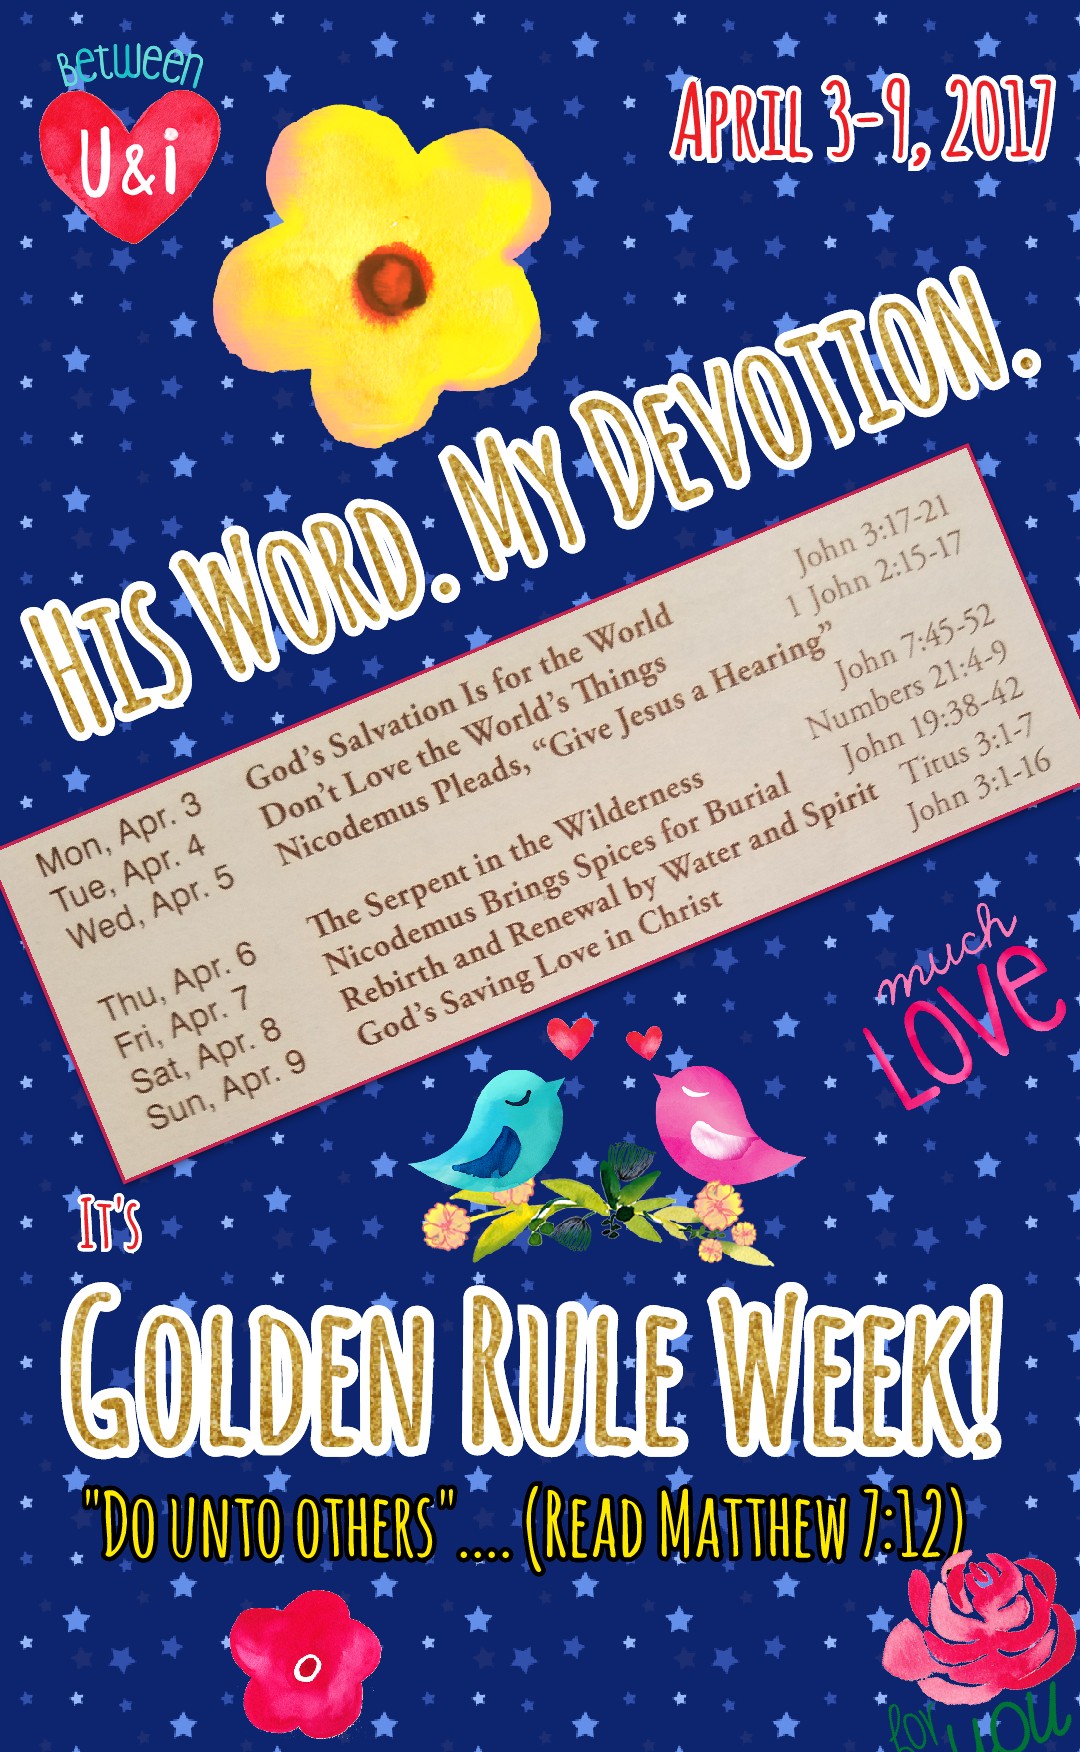 Between
U & i
April 3-9, 2017
His Word. My Devotion.
Mon, Apr. 3 God's Salvation Is for the World John 3:17-21
Tue, Apr. 4 Don't Love the World's Things 1 John 2:15-17
Wed, Apr. 5 Nicodemus Pleads, “Give Jesus a Hearing”
John 7:45-52
Thu, Apr. 6 The Serpent in the Wilderness Numbers 21:4-9
Fri, Apr. 7 Nicodemus Brings Spices for Burial John 19:38-42
Sat, Apr. 8 Rebirth and Renewal by Water and Spirit Titus 3:1-7
Sun, Apr. 9 God's Saving Love in Christ John 3:1-16
much
LOVE
It's
Golden Rule Week!
"Do unto others".... (Read Matthew 7:12)
for you